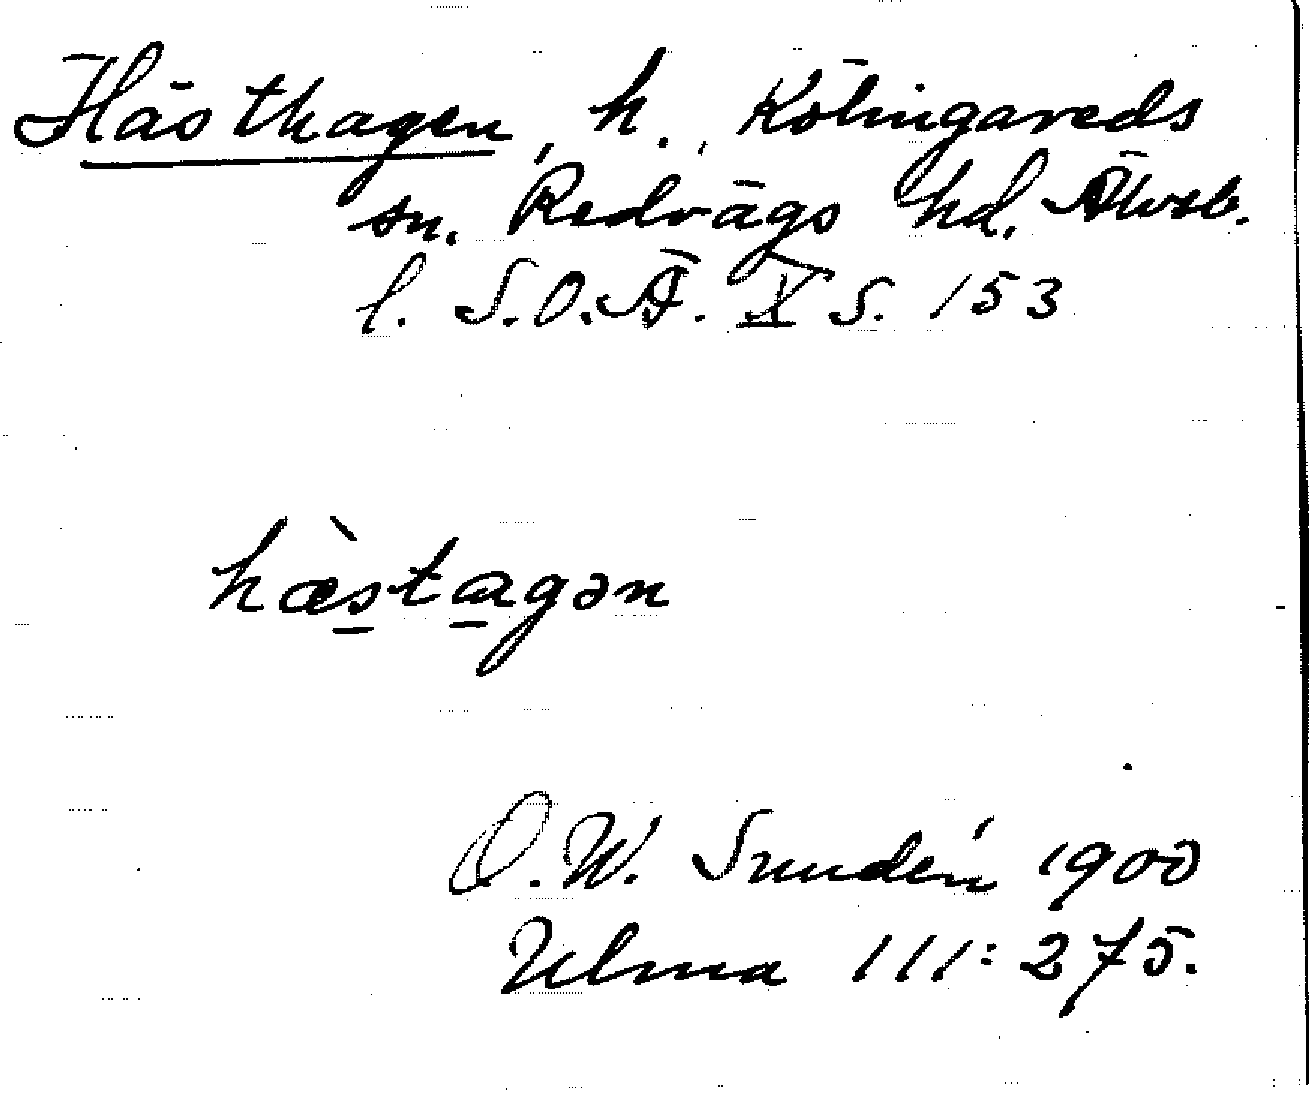 Hästhagen, h., Kölingareds
sn. Redvägs hd. Älvsb.
l. S.O.Ä. X s. 153
hæ̀stagən
O.W. Sundén 1900
Ulma 111:275.